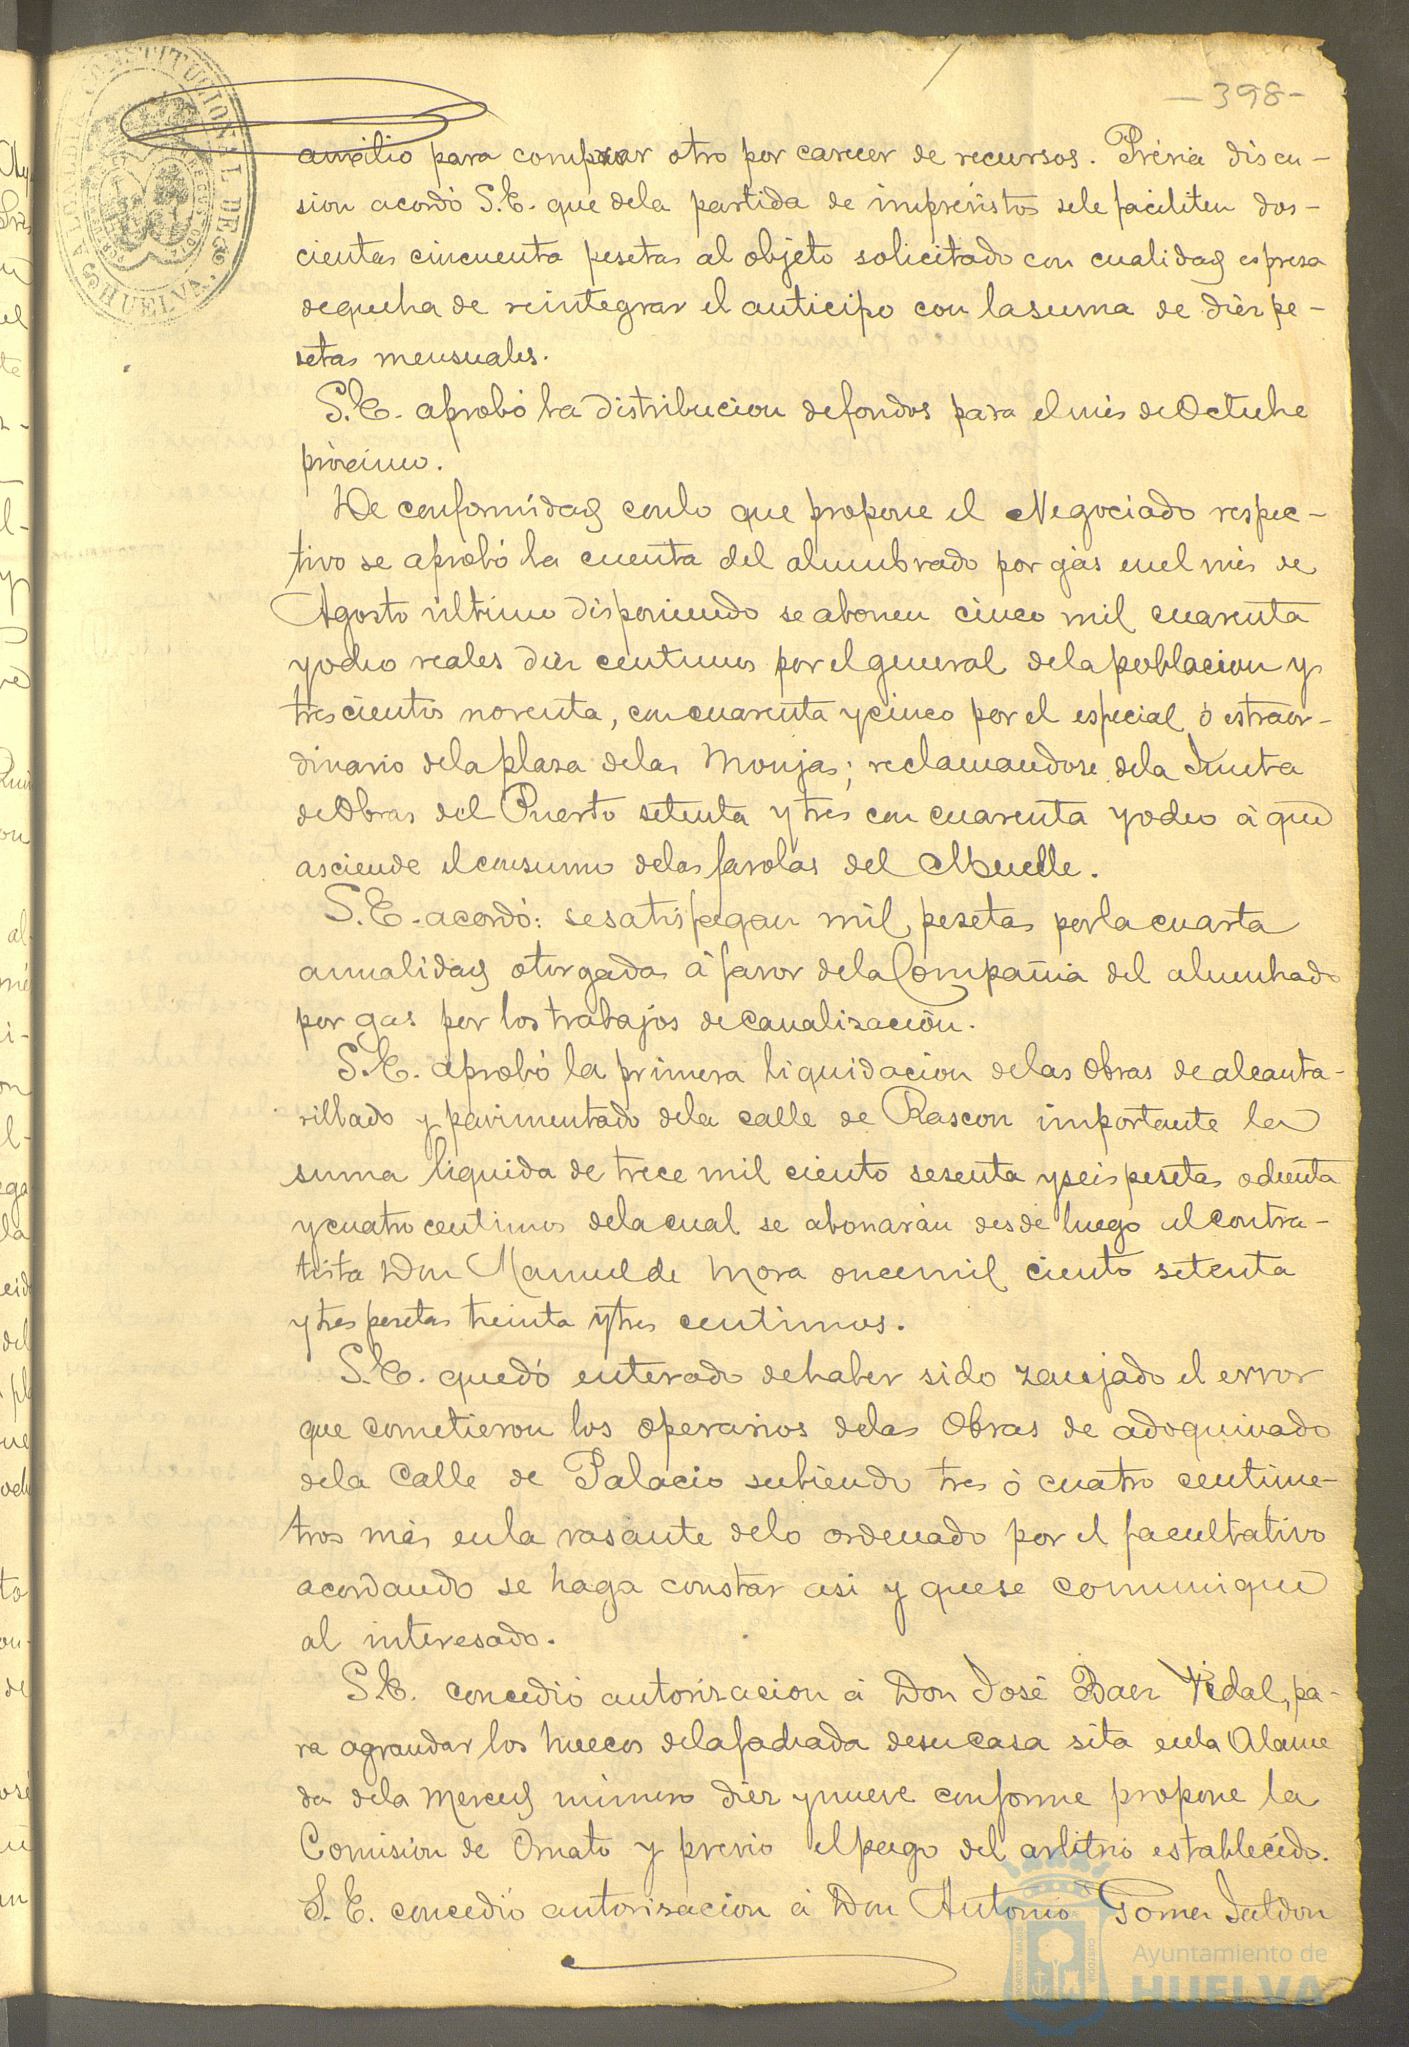 -398-
ALCALDIA CONSTITUCIONAL DE HUELVA
auxilio para comprar otro por carecer de recursos. Prévia discu-
sion acordó S.E. que dela partida de imprevistos sele faciliten dos-
cientas cincuenta pesetas al objeto solicitado con cualidad espresa
dequeha de reintegrar el anticipo con lasuma de diez pe-
setas mensuales.
S.E. aprobó la distribucion defondos para elmes deOctubre
próximo.
De conformidad conlo que propone el Negociado respec-
tivo se aprobó la cuenta del alumbrado por gas enel mes de
Agosto último disponiendo se abonen cinco mil cuarenta
yocho reales diez centimos por elgeneral dela poblacion y
trescientos noventa, concuarenta ycinco por el especial ó estraor-
dinario dela plaza delas Monjas; reclamandose dela Junta
deObras del Puerto setenta ytres con cuarenta yocho á que
asciende elconsumo delas farolas del Muelle.
S.E. acordó: sesatisfagan mil pesetas porla cuarta
anualidad otorgada á favor dela Compañia del alumbrado
por gas por los trabajos decanalización.
S.E. aprobó la primera liquidacion delas obras dealcanta-
rillado y pavimentado dela calle de Rascon importante la
suma liquida de trece mil ciento sesenta yseis pesetas ochenta
ycuatro centimos delacual se abonarán desde luego alcontra-
tista Don Manuel de Mora oncemil ciento setenta
ytres pesetas treinta ytres centimos.
S.E. quedó enterado dehaber sido zanjado el error
que cometieron los operarios delas Obras de adoquinado
dela Calle de Palacio subiendo tres ó cuatro centime-
tros más enla rasante delo ordenado por el facultativo
acordando se haga constar asi y quese comunique
al interesado.
S.E. concedió autorizacion á Don José Baez Vidal, pa-
ra agrandar los huecos delafachada desucasa sita enla Alame
da dela Merced número diez ynueve conforme propone la
Comision de Ornato y previo elpago del arbitrio establecido.
S.E. concedió autorizacion á Don Antonio Gomez Jaldon
Ayuntamiento de
HUELVA